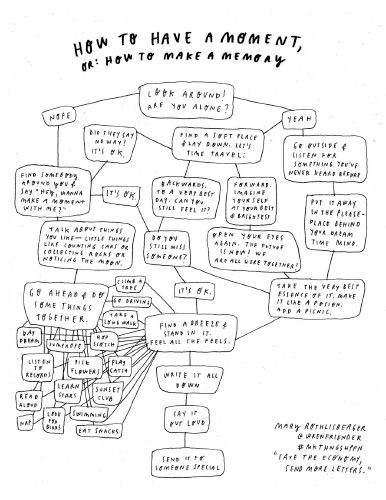 HOW TO HAVE A MOMENT,
OR: HOW TO MAKE A MEMORY
LOOK AROUND!
ARE YOU ALONE?
NOPE
YEAH
DID THEY SAY
NO WAY?
IT'S OK.
FIND A SOFT PLACE
& LAY DOWN. LET'S
TIME TRAVEL:
GO OUTSIDE &
LISTEN FOR
SOMETHING YOU'VE
NEVER HEARD BEFORE
FIND SOMEBODY
AROUND YOU &
SAY "HEY, WANNA
MAKE A MOMENT
WITH ME?"
IT'S OK.
BACKWARDS,
TO A VERY BEST
DAY. CAN YOU
STILL FEEL IT?
FORWARD:
IMAGINE
YOURSELF AT
YOUR BEST &
BRIGHTEST
PUT IT AWAY
IN THE PLEASE-
PLACE BEHIND
YOUR DREAM
TIME MIND.
TALK ABOUT THINGS
YOU LIKE— LITTLE THINGS
LIKE COUNTING CARS OR
COLLECTING ROCKS OR
NOTICING THE MOON.
DO YOU
STILL MISS
SOMEONE?
OPEN YOUR EYES
AGAIN. THE FUTURE
IS NOW! WE
ARE ALL HERE TOGETHER!
IT'S OK.
TAKE THE VERY BEST
ESSENCE OF IT. MAKE
IT LIKE A POTION.
ADD A PICNIC.
GO AHEAD & DO
SOME THINGS
TOGETHER.
CLIMB A
TREE
GO DRIVING
TAKE A
LONG WALK
DAY
DREAM
JUMPROPE
HOP
SCOTCH
LISTEN
TO
RECORDS
PICK
FLOWERS
PLAY
CATCH
READ
ALOUD
LEARN
STARS
SUNSET
CLUB
NAP
LOOK
FOR
BIRDS
SWIMMING
EAT SNACKS
FIND A BREEZE &
STAND IN IT.
FEEL ALL THE FEELS.
WRITE IT ALL
DOWN
SAY IT
OUT LOUD
SEND IT TO
SOMEONE SPECIAL
MARY ROTHLISBERGER
@WRENFRIENDER
#MKTHNGSHPPN
"SAVE THE ECONOMY,
SEND MORE LETTERS."